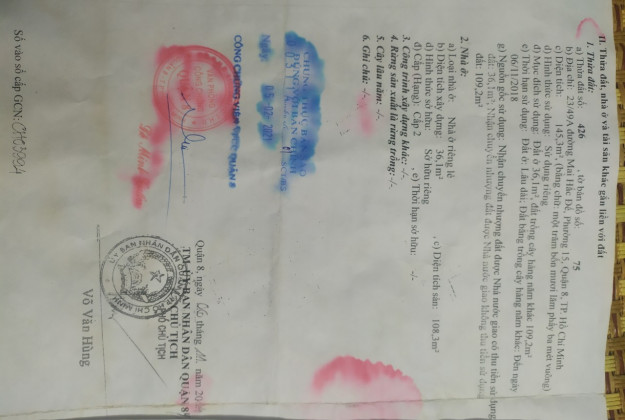 II. Thửa đất, nhà ở và tài sản khác gắn liền với đất
1. Thửa đất:
a) Thửa đất số: 426 , tờ bản đồ số: 75
b) Địa chỉ: 23/49A đường Mai Hắc Đế, Phường 15, Quận 8, TP. Hồ Chí Minh
c) Diện tích: 145,3m², (bằng chữ: một trăm bốn mươi lăm phẩy ba mét vuông)
d) Hình thức sử dụng: Sử dụng riêng
đ) Mục đích sử dụng: Đất ở 36,1m², đất trồng cây hàng năm khác 109,2m²
e) Thời hạn sử dụng: Đất ở: Lâu dài; Đất bằng trồng cây hàng năm khác: Đến ngày
06/11/2018
g) Nguồn gốc sử dụng: Nhận chuyển nhượng đất được Nhà nước giao có thu tiền sử dụng
đất: 36,1m²; Nhận chuyển nhượng đất được Nhà nước giao không thu tiền sử dụng
đất: 109,2m²
2. Nhà ở:
a) Loại nhà ở: Nhà ở riêng lẻ
b) Diện tích xây dựng: 36,1m² , c) Diện tích sàn: 108,3m²
d) Hình thức sở hữu: Sở hữu riêng
đ) Cấp (Hạng): Cấp 2 , e) Thời hạn sở hữu: -/-
3. Công trình xây dựng khác: -/-
4. Rừng sản xuất là rừng trồng: -/-
5. Cây lâu năm: -/-
6. Ghi chú: -/-
CHỨNG THỰC BẢN SAO
ĐÚNG VỚI BẢN CHÍNH
Ngày:
CÔNG CHỨNG VIÊN VPCC QUẬN 8
Quận 8, ngày 06 tháng 11 năm
TM. ỦY BAN NHÂN DÂN QUẬN 8
CHỦ TỊCH
PHÓ CHỦ TỊCH
Võ Văn Hùng
Số vào sổ cấp GCN: